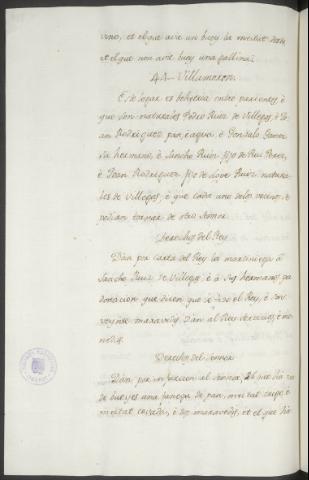 vino, et el que avie un buey la meitat desto,
et el que non avie buey una gallina.
44 - Villamoron.
Este logar es behetria entre parientes, è
que son naturales Pedro Ruiz de Villegas, è
Rodriguez, è Gonzalo
hermano, è Sancho Ruiz fijo de Rui Perez,
è Joan Rodriguez fijo de Lope Ruiz natura-
les de Villegas, è que cada uno delos vecinos
podian tornar de otro Sennor
Derechos del Rey
Dan por carta del Rey la martiniega à
Sancho Ruiz de Villegas, è à sus hermanos por
donacion que dicen que les fizo el Rey,
maravedis. Dan al Rey servicios, è mo-
nedas.
Derechos del Sennor
Dan por infurcion al Sennor, el que ha
de bueyes una fanega de pan, meitat trigo, è
meitat cevada, è dos maravedis, et el que